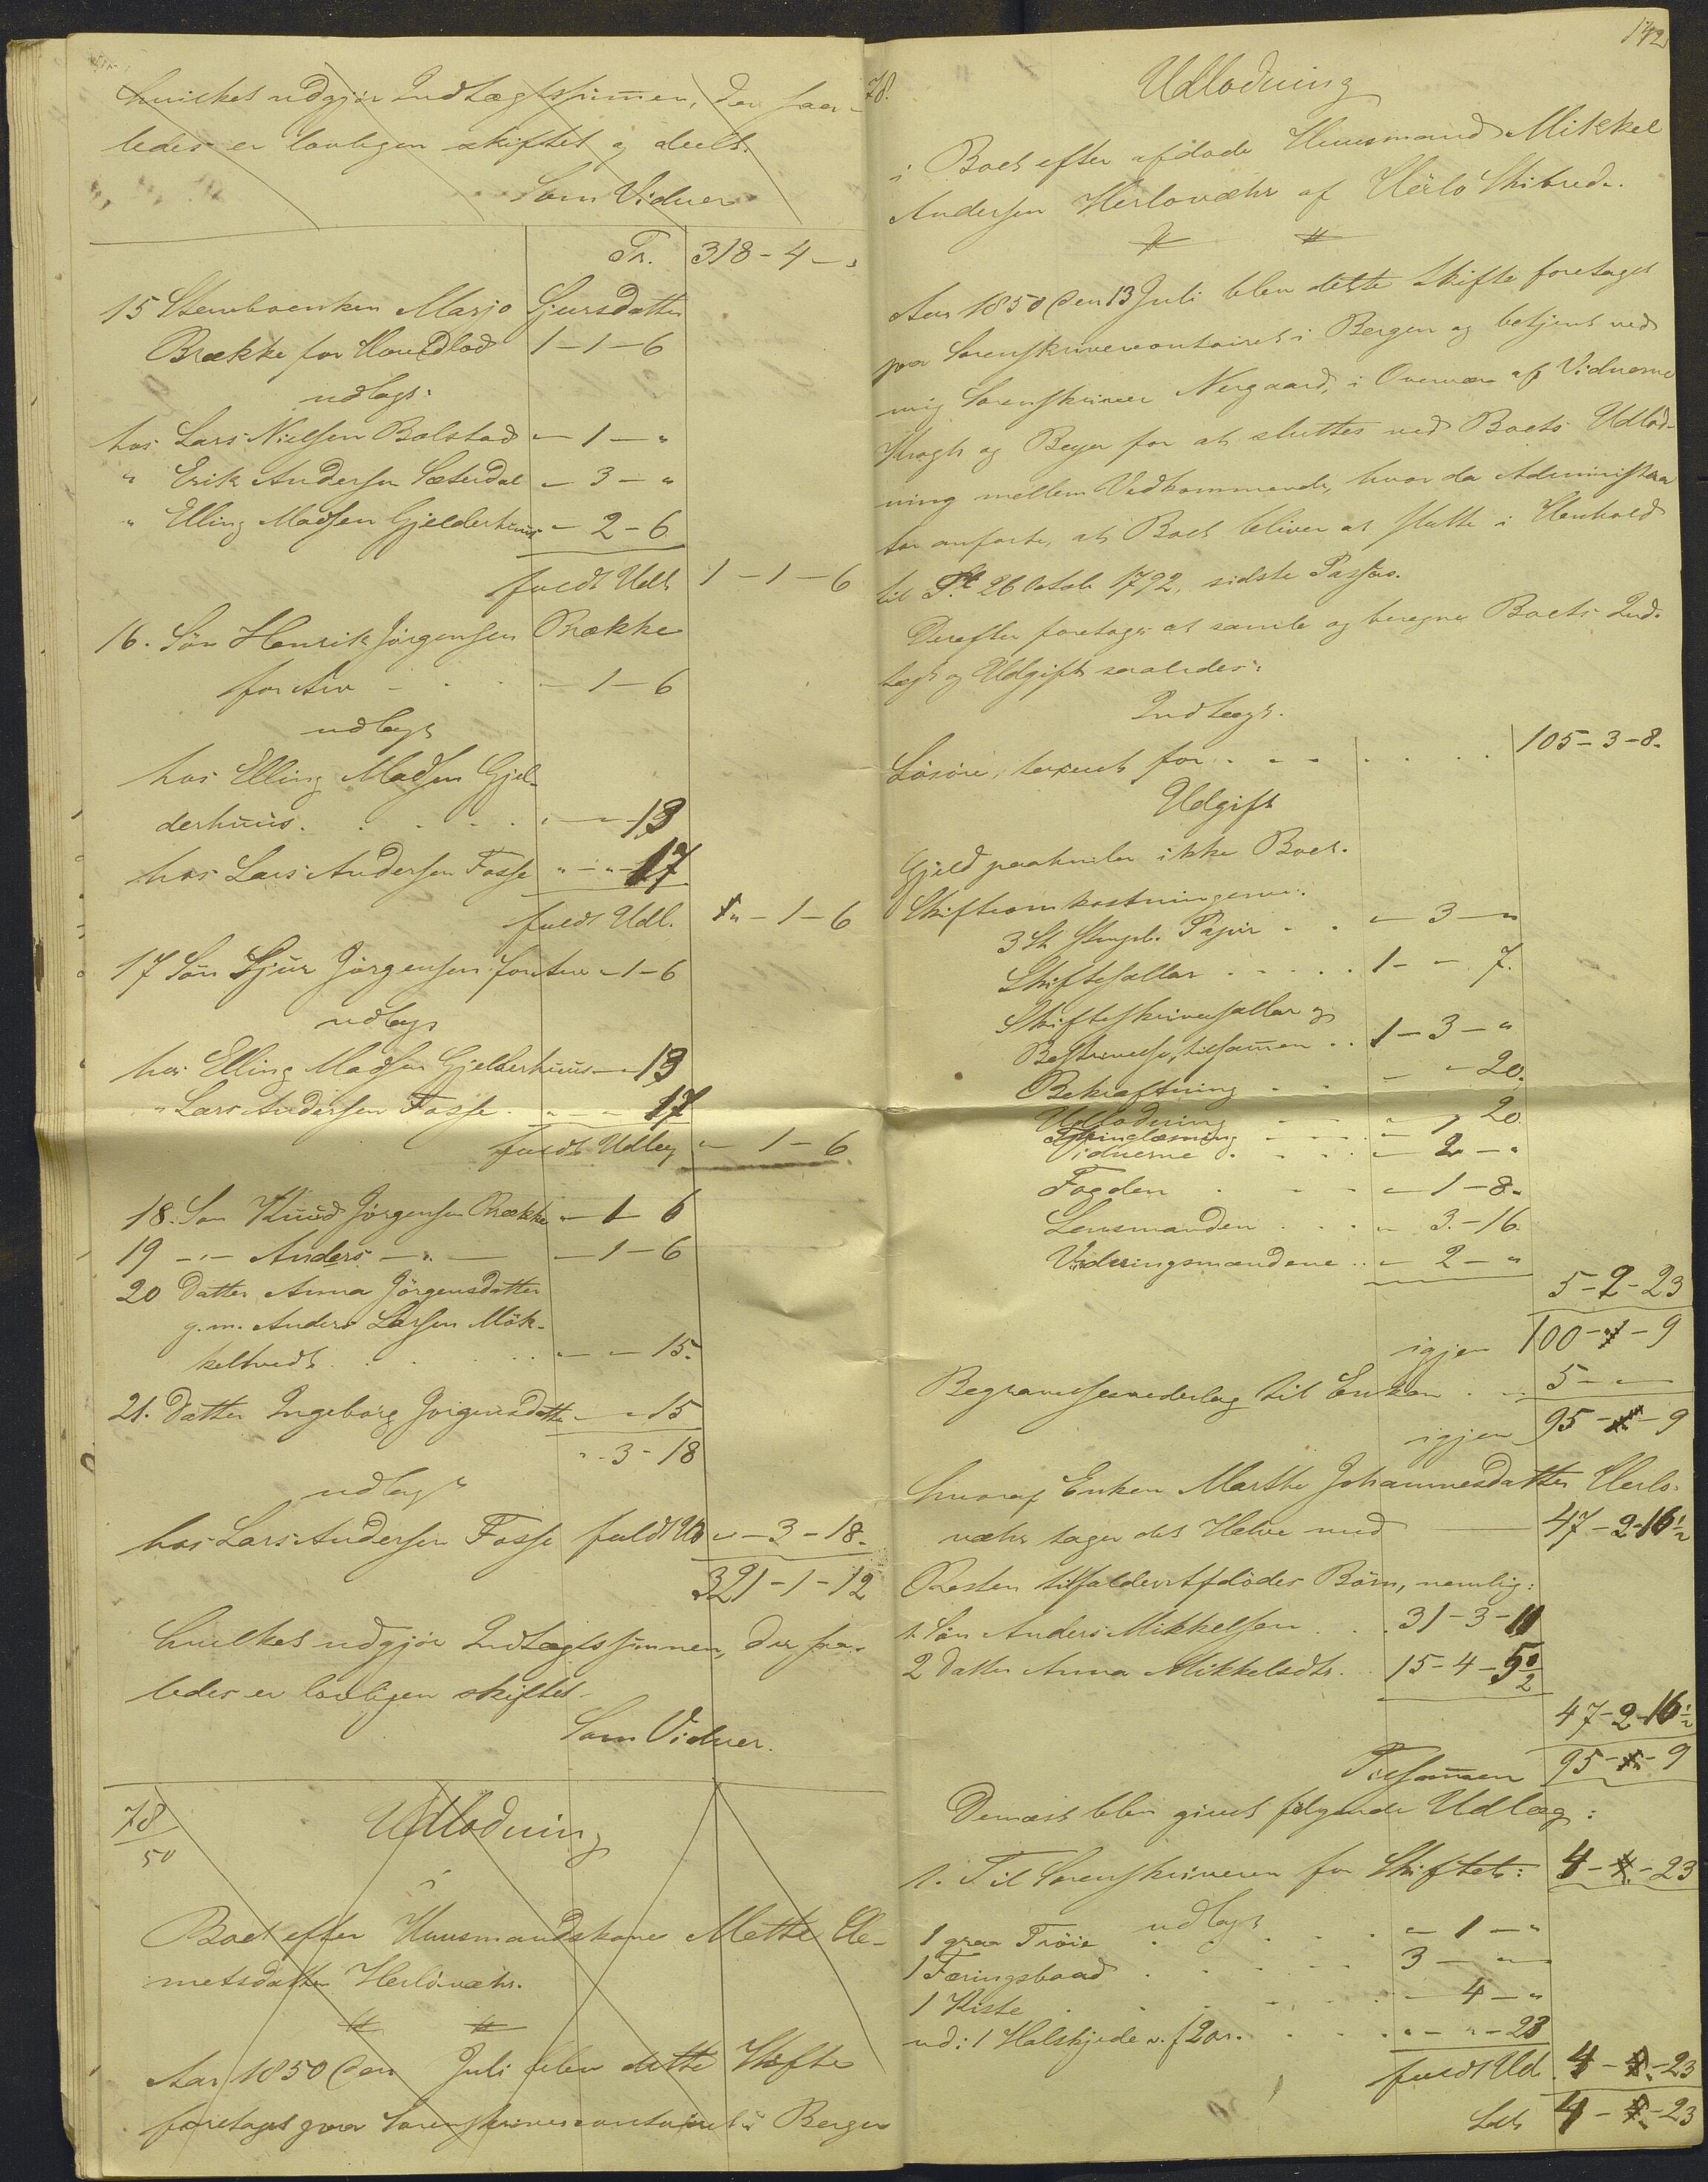 hvilket udgjør Indtægtssummen, der saa-
ledes er lovligen skiftet og deelt.
Som Vidner
Tr. 318-4-"
15 Sterboenken Marjo Sjursdatter
Brække for Hovedlod 1-1-6
udlagt:
hos Lars Nielsen Bolstad "-1-"
" Erik Andersen Sæterdal "-3-"
" Elling Madsen Gjelderhuus "-2-6
fuldt Udl. 1-1-6
16. Søn Henrik Jørgensen Brække
for Arv - "-1-6
udlagt
hos Elling Madsen Gjel-
derhuus. "-"-13
hos Lars Andersen Fosse "-"-17
fuldt Udl. "-1-6
17 Søn Sjur Jørgensen for Arv "-1-6
udlagt
hos Elling Madsen Gjelderhuus "-"-13
" Lars Andersen Fosse "-"-17
fuldt Udlæg "-1-6
18. Søn Knud Jørgensen Brække "-1-6
19 -"- Anders -"- "-1-6
20 Datter Anna Jørgensdatter
g. m. Anders Larsen Mök-
keltvedt "-"-15.
21. Datter Ingeborg Jørgensdatter "-"-15
"-3-18
udlagt
hos Lars Andersen Fosse fuldt Ud "-3-18.
321-1-12
hvilket udgjør Indtægtssummen, der saa-
ledes er lovligen skiftet.
Som Vidner.
78/50
Udlodning
i
Boet efter Huusmandskone Mette Cle-
metsdatter Herlovæhr.
Aar 1850 den Juli blev dette Skifte
foretaget paa Sorenskrivercontoiret i Bergen
142
78.
Udlodning
i Boet efter afdøde Huusmand Mikkel
Andersen Herlovæhr af Herlö Skibrede.
Aar 1850 den 13 Juli blev dette Skifte foretaget
paa Sorenskrivercontoiret i Bergen og betjent ved
mig Sorenskriver Nergaard, i Overvær af Vidnerne
Krogh og Beyer for at sluttes ved Boets Udlod-
ning mellem Vedkommende, hvor da Administra
tor anførte, at Boet bliver at slutte i Henhold
til Pl. 26 Octob. 1792, sidste Passus.
Derefter foretoges at samle og beregne Boets Ind-
tægt og Udgift saaledes:
Indtægt.
Løsøre, taxeret for 105-3-8.
Udgift
Gjeld paahviler ikke Boet.
Skifteomkostningerne:
3 St. Stempl. Papir "-3-"
Skiftesallar 1-"-7.
Skifteskriversallar og
Beskrivelse, tilsammen 1-3-"
Bekræftning "-"-20.
Udlodning "-"-20
Thinglæsning
Vidnerne "-2-"
Fogden "-1-8.
Lensmanden "-3-16.
Vurderingsmændene "-2-"
5-2-23
igjen 100-"-9
Begravelsesvederlag til Enken 5-"-"
igjen 95-"-9
hvoraf Enken Marthe Johannesdatter Herlo-
væhr tager det Halve med 47-2-16½
Resten tilfalder Afdødes Børn, nemlig:
1. Søn Anders Mikkelsen 31-3-11
2 Datter Anna Mikkelsdtr. 15-4-5½
47-2-16½
Tilsammen 95-"-9
Dernæst blev givet følgende Udlæg:
1. Til Sorenskriveren for Skiftet: 4-"-23
udlagt
1 graa Trøie "-1-"
1 Færingsbaad 3-"-"
1 Kiste "-4-"
ud i 1 Halskjede "-"-23
fuldt Udl. 4-"-23
Lat. 4-"-23